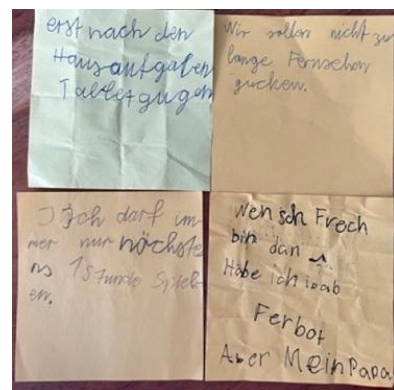 erst nach den
Hausaufgaben
Tablet gugen
Wir sollen nicht zu
lange Fernsehen
gucken.
Ich darf im-
mer nur nöchste
ns 1 stunde spiel-
en.
Wen ich Frech
bin dan
Habe ich
Ferbot
Aber Mein Papa